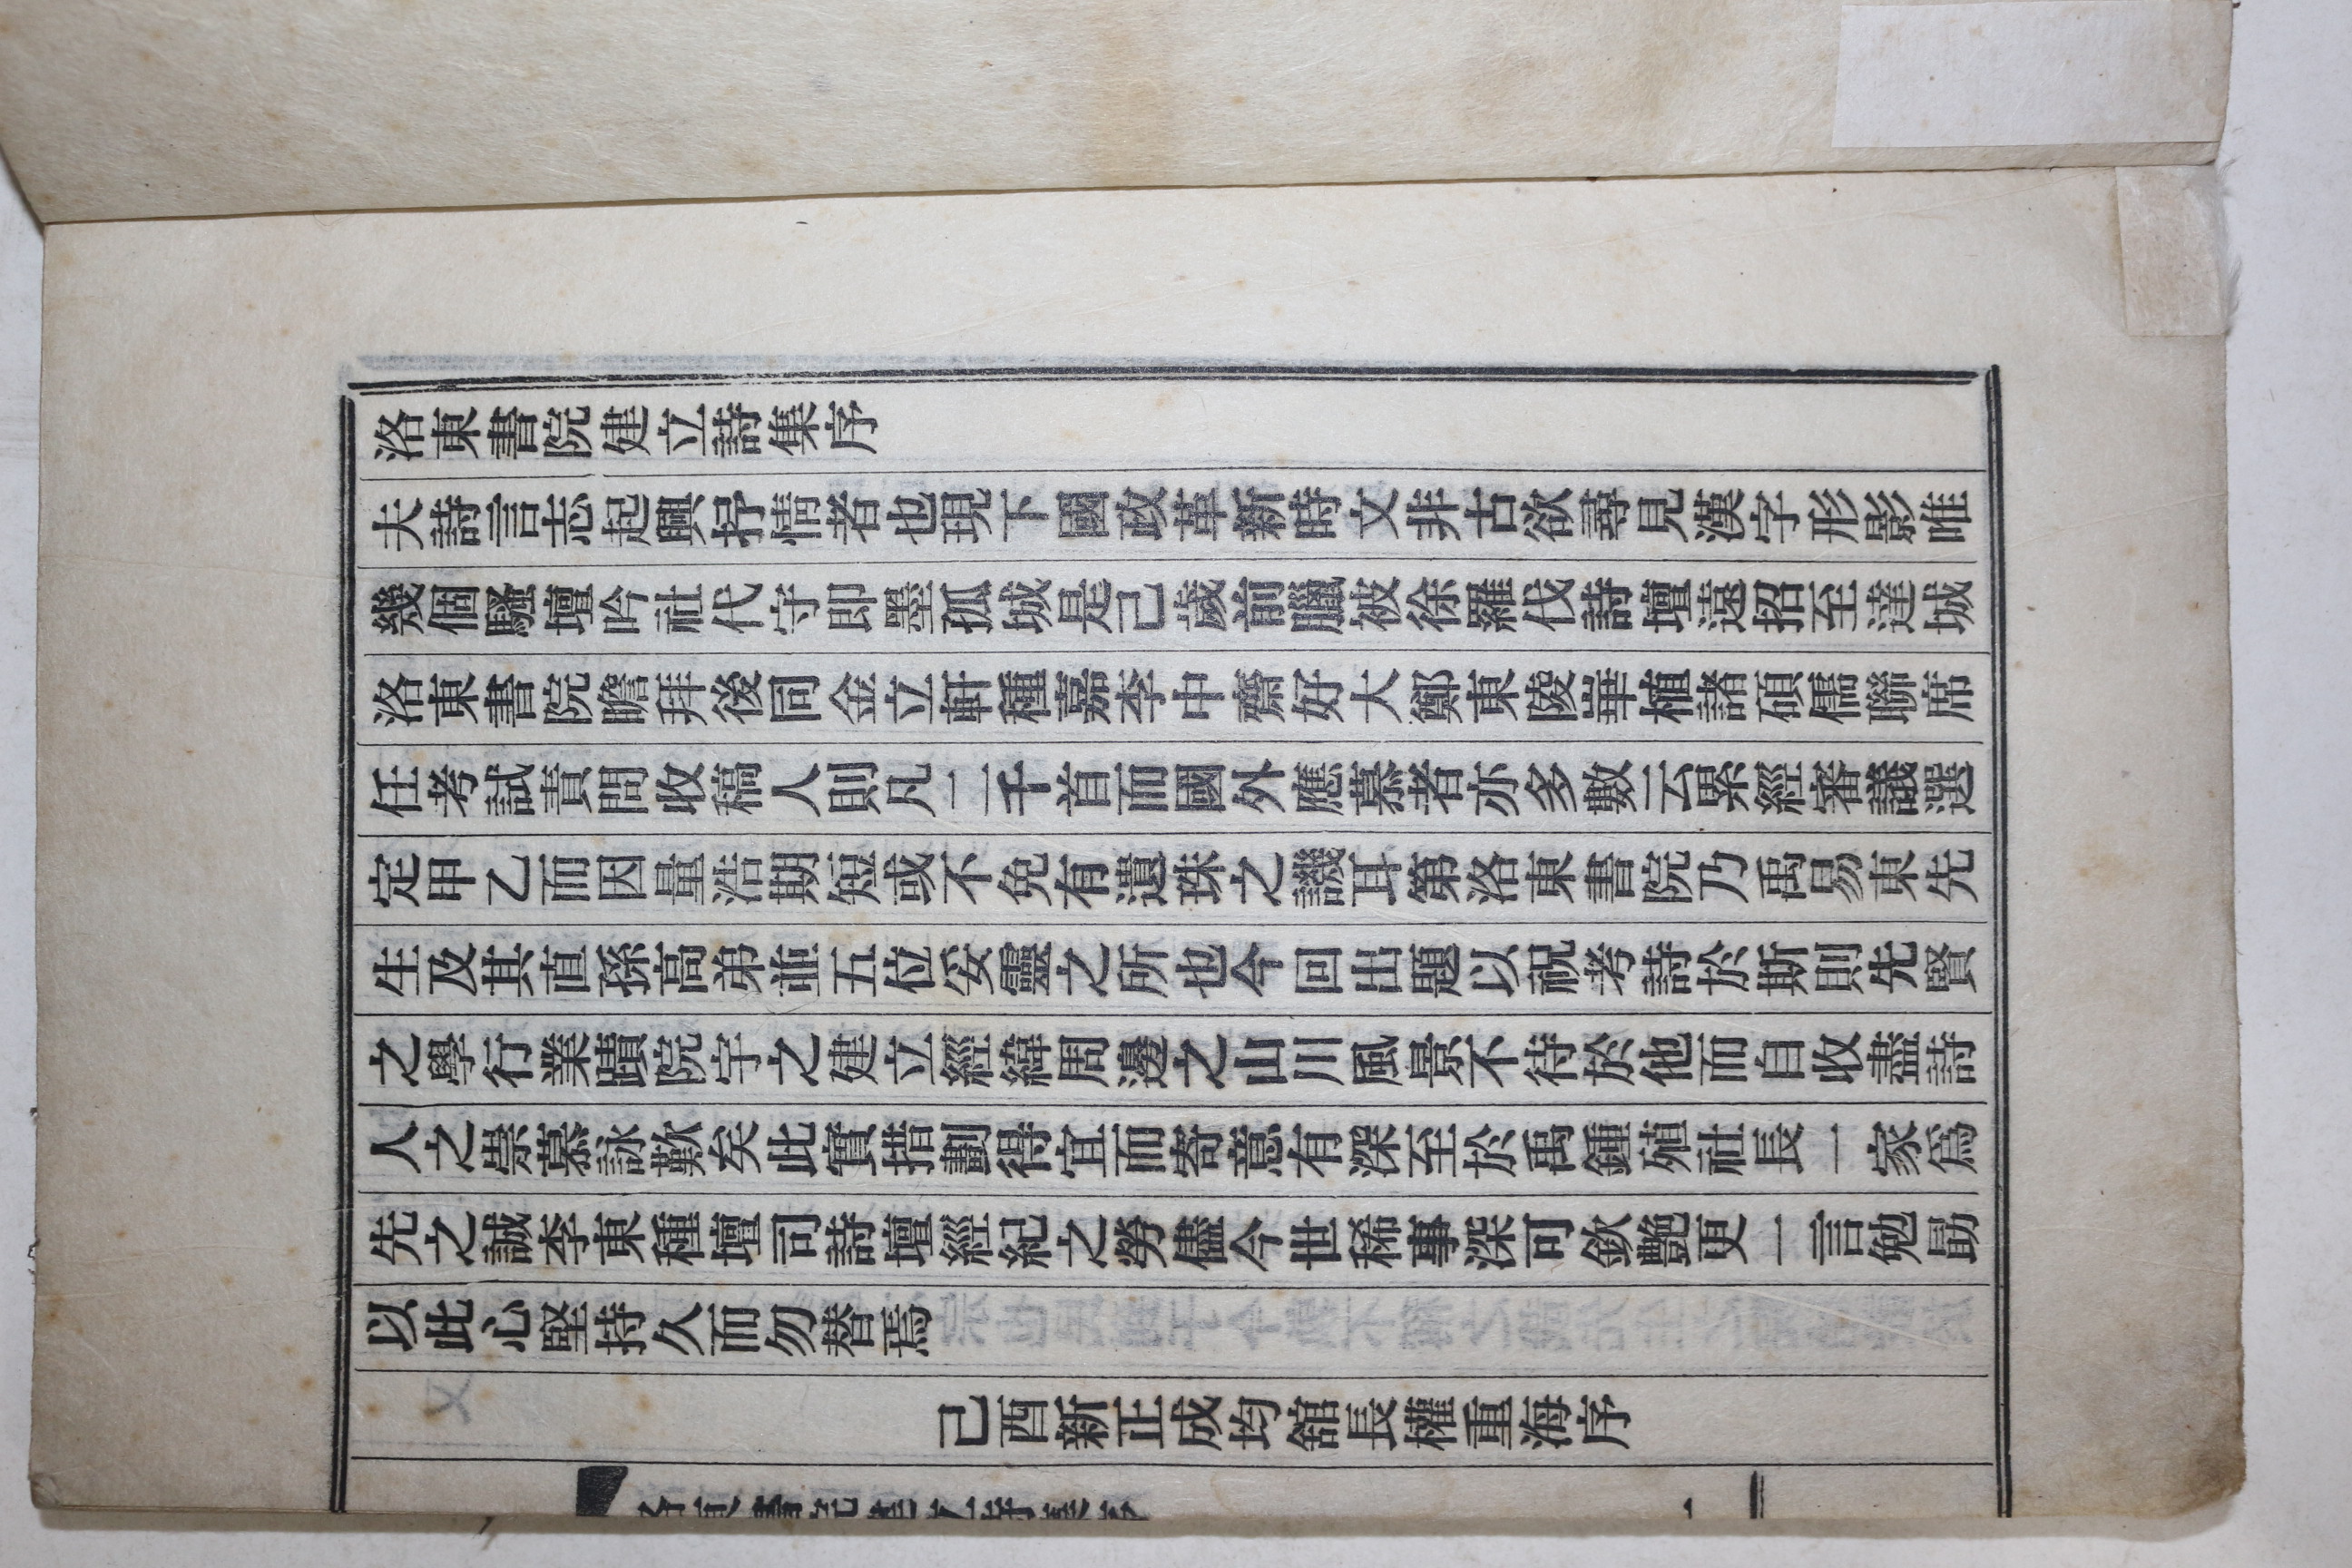 洛東書院建立詩集序
夫詩言志起興抒情者也現下國政革新時文非古欲尋見漢字形影唯
幾個騷壇吟社代守即墨孤城是己歲前臘被徐羅伐詩壇遠招至達城
洛東書院瞻拜後同金立軒種嘉李中齋好大鄭東陵崋植諸碩儒聯席
任考試責問收稿人則凡二千首而國外應募者亦多數云累經審議選
定甲乙而因量浩期短或不免有遺珠之譏耳第洛東書院乃禹易東先
生及其直孫高弟並五位妥靈之所也今回出題以祝考詩於斯則先賢
之學行業蹟院宇之建立經緯周邊之山川風景不待於他而自收盡詩
人之崇慕詠歎矣此實措劃得宜而寄意有深至於禹鍾殖社長一家爲
先之誠李東種壇司詩壇經紀之勞儘今世稀事深可欽艷更一言勉勗
以此心堅持久而勿替焉
己酉新正成均舘長權重海序